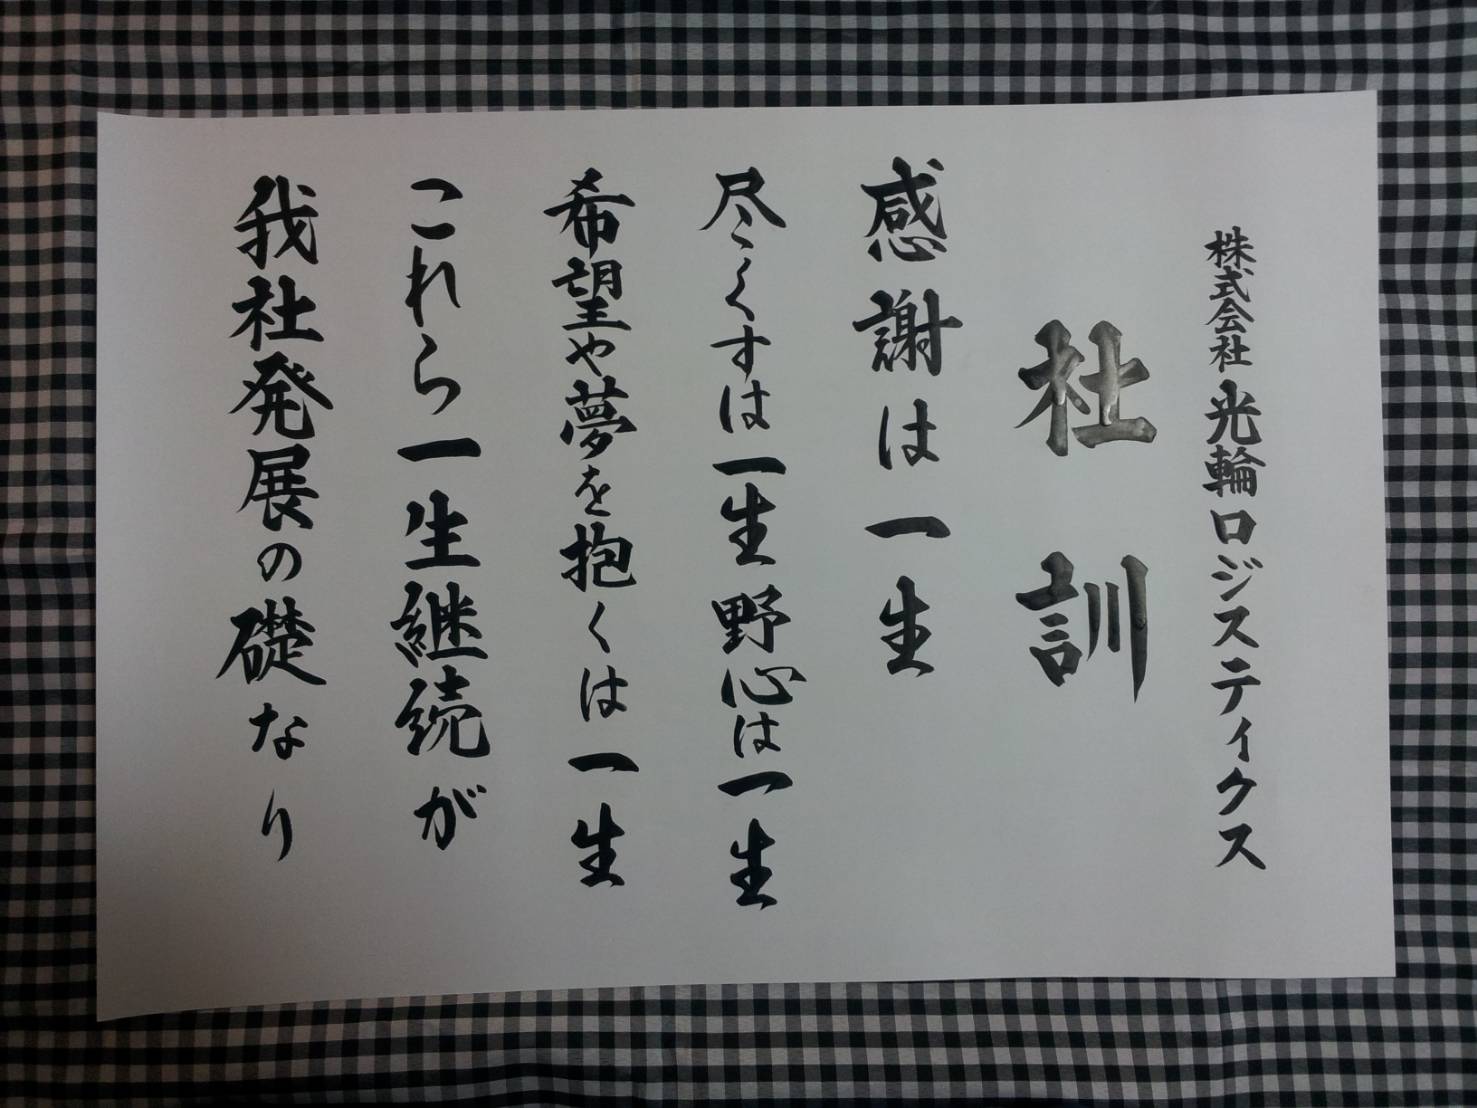 株式会社 光輪ロジスティクス
社訓
感謝は一生
尽くすは一生 野心は一生
希望や夢を抱くは一生
これら一生継続が
我社発展の礎なり